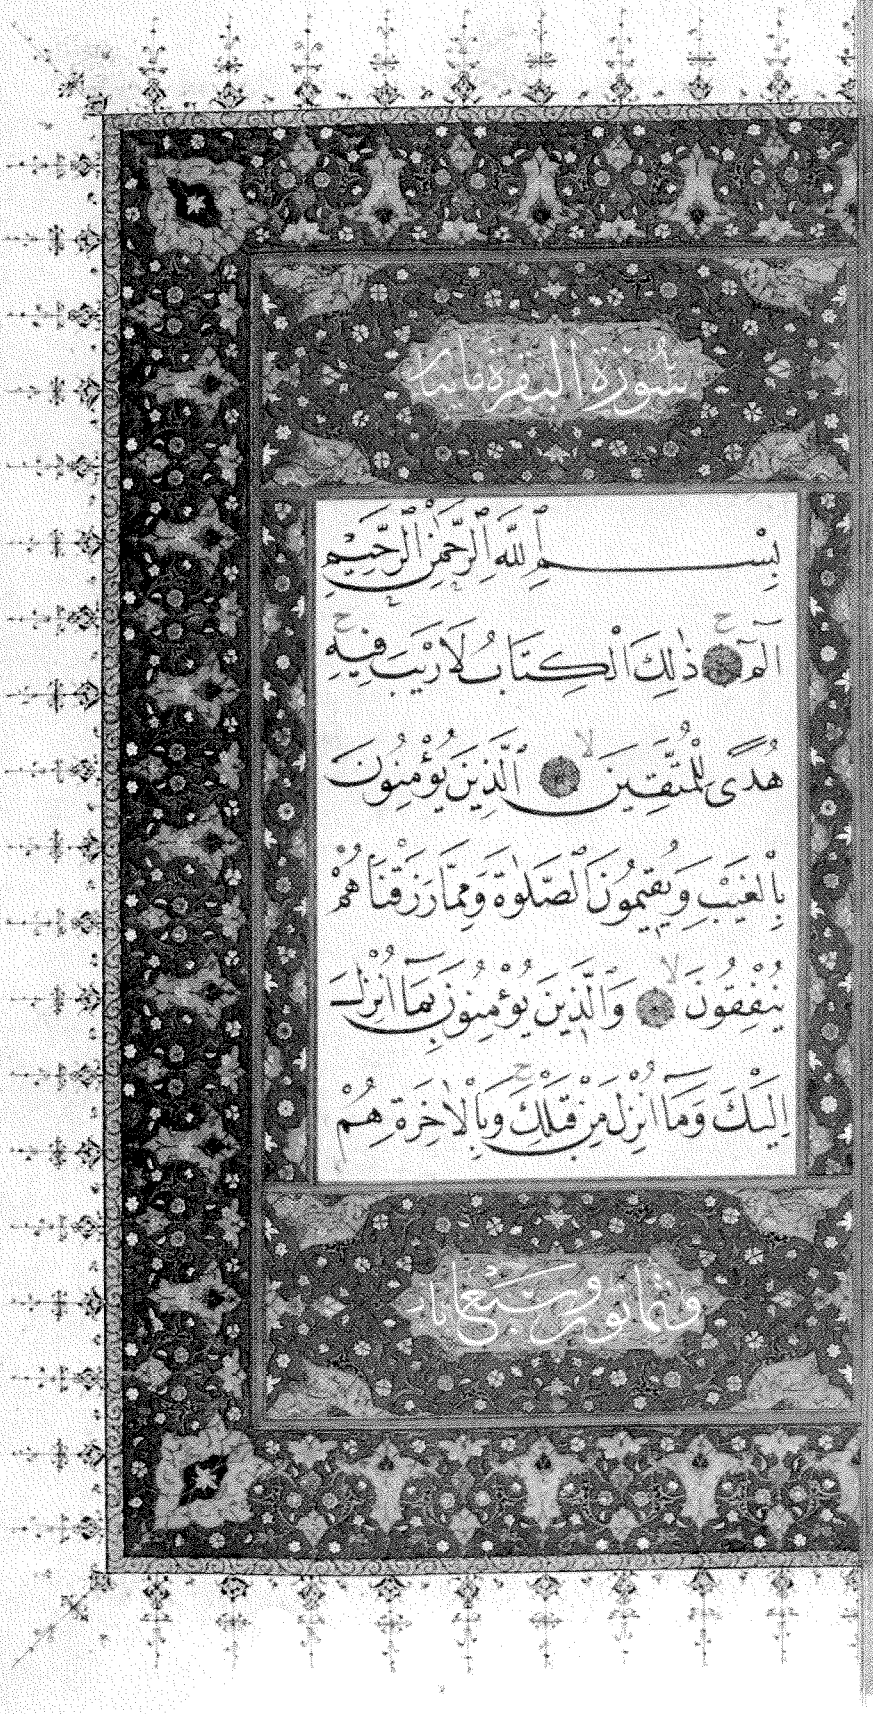 سُورَةُ الْبَقَرَةِ مِائَتَانِ
بِسْمِ ٱللَّهِ ٱلرَّحْمٰنِ ٱلرَّحِيمِ
الٓمٓ ۝ ذٰلِكَ الْكِتَابُ لَا رَيْبَ فِيهِ
هُدًى لِلْمُتَّقِينَ ۝ ٱلَّذِينَ يُؤْمِنُونَ
بِالْغَيْبِ وَيُقِيمُونَ ٱلصَّلٰوةَ وَمِمَّا رَزَقْنَاهُمْ
يُنْفِقُونَ ۝ وَٱلَّذِينَ يُؤْمِنُونَ بِمَٓا اُنْزِلَ
اِلَيْكَ وَمَٓا اُنْزِلَ مِنْ قَبْلِكَ وَبِالْاٰخِرَةِ هُمْ
وثمانون وسبع آيات